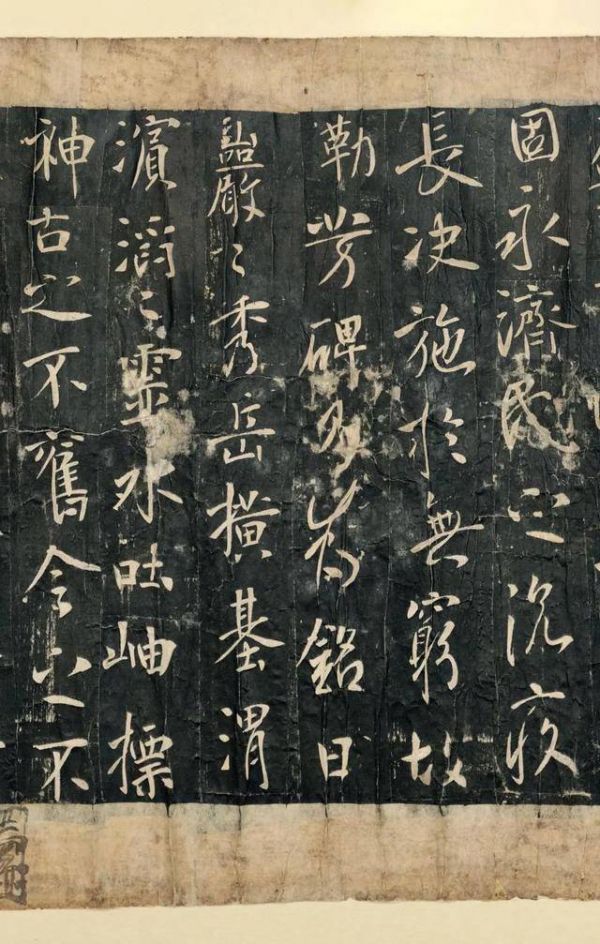 固永濟民之沉疾
長決施於無窮故
勒芳碑乃為銘曰
巖〻秀岳橫基渭
濱滔〻靈水吐岫標
神古之不舊今之不